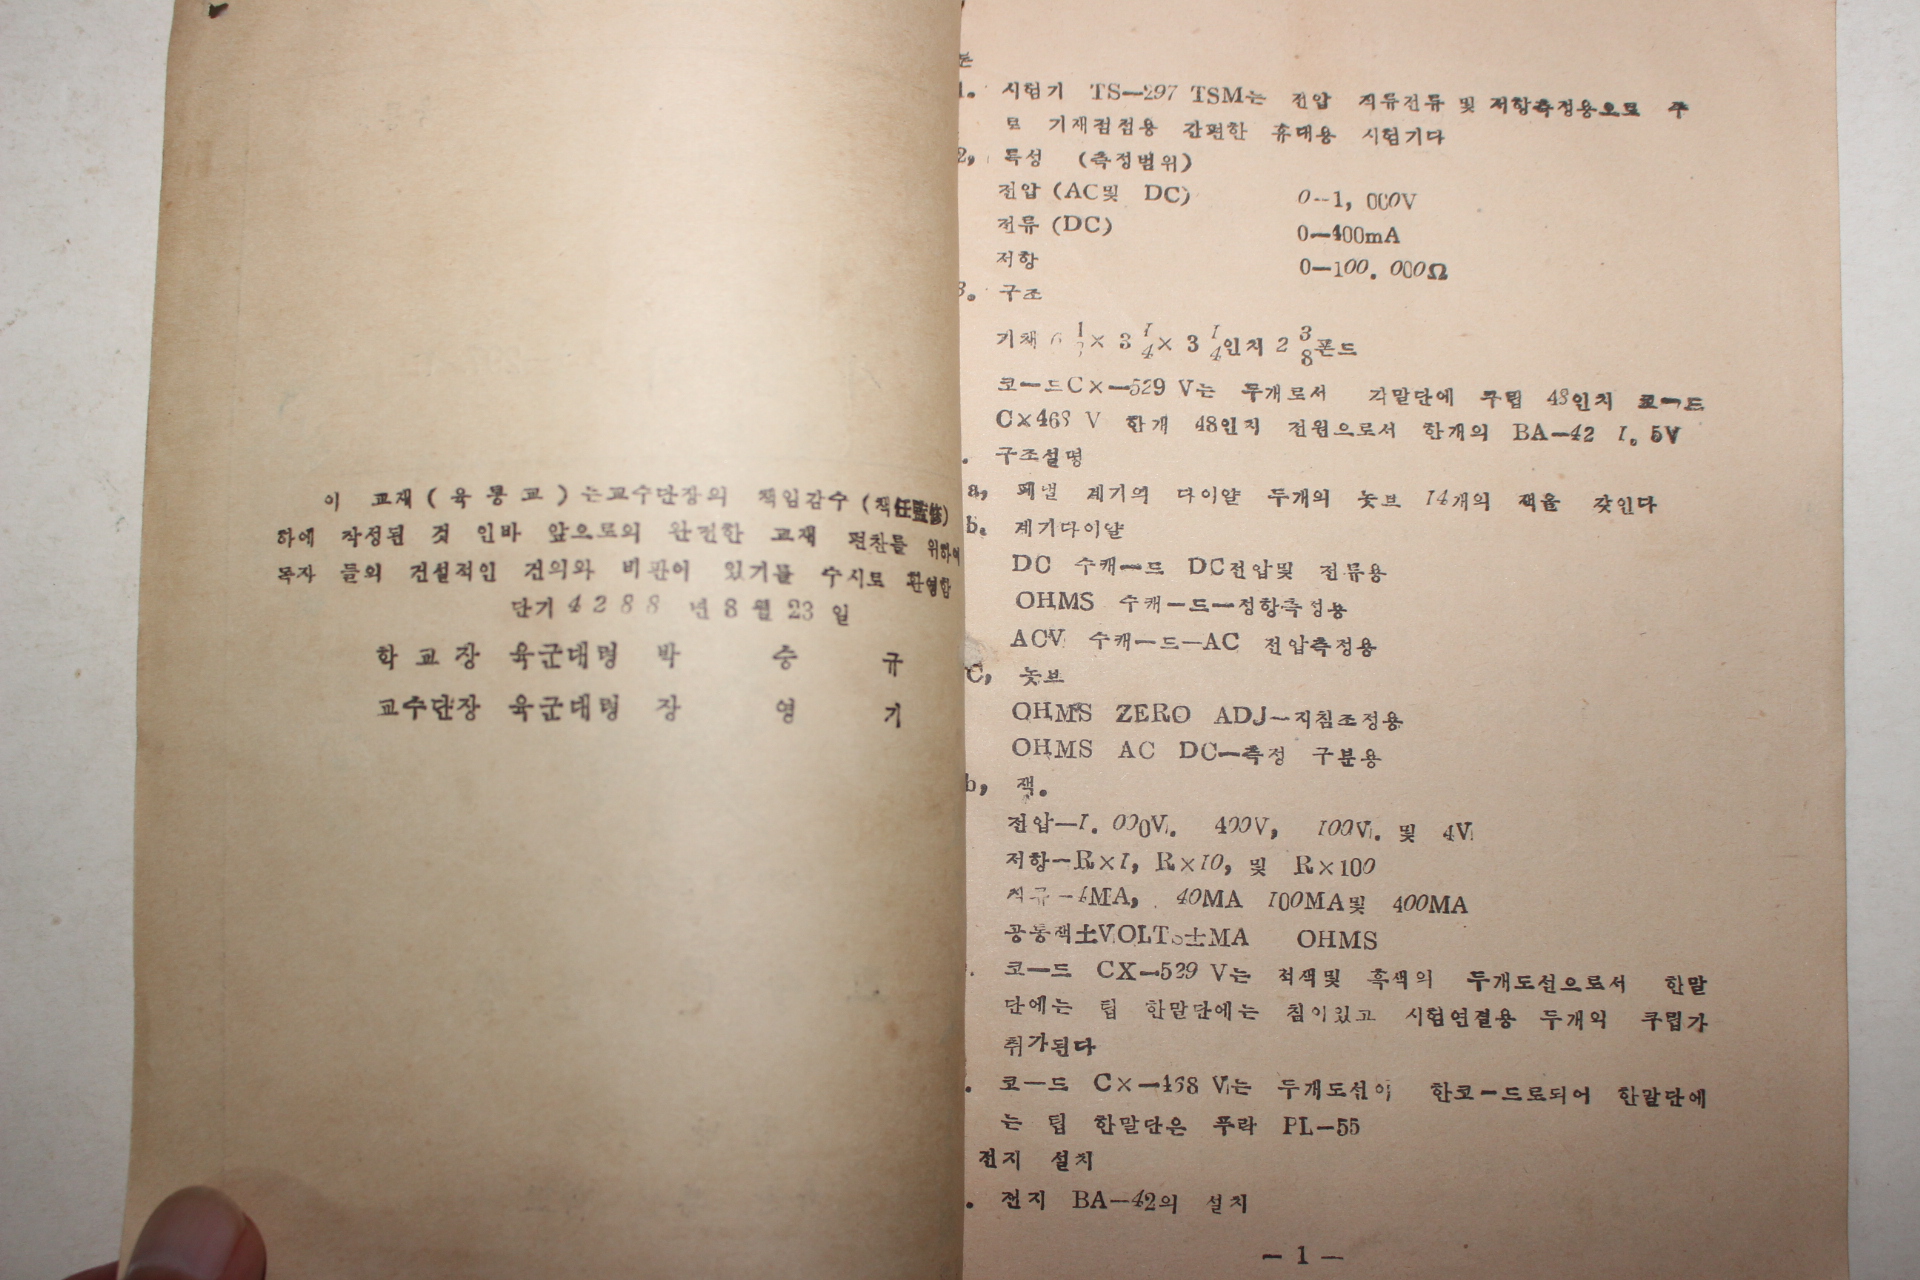 이 교재 (육통교)는교수단장의 책임감수 (책任監修)
하에 작성된 것 인바 앞으로의 완전한 교재 편찬을 위하여
독자 들의 건설적인 건의와 비판이 있기를 수시로 환영함
단기 4288 년 8 월 23 일
학 교 장 육군대령 박 승 규
교수단장 육군대령 장 영 기
1. 시험기 TS—297 TSM는 전압 직류전류 및 저항측정용으로 주
로 기재점검용 간편한 휴대용 시험기다
2, 특성 (측정범위)
전압 (AC및 DC) 0--1, 000V
전류 (DC) 0—400mA
저항 0—100. 000Ω
3. 구조
기재 6 1/2× 3 1/4× 3 1/4인치 2 3/8폰드
코—드C×—529 V는 두개로서 각말단에 쿠립 48인치 코—드
C×468 V 한개 48인치 전원으로서 한개의 BA—42 1. 5V
. 구조설명
a, 패널 계기의 다이알 두개의 놋브 14개의 잭을 갖인다
b. 계기다이얄
DC 수캐—드 DC전압및 전류용
OHMS 수캐—드—정항측정용
ACV 수캐—드—AC 전압측정용
C, 놋브
OHMS ZERO ADJ—지침조정용
OHMS AC DC—측정 구분용
b, 잭.
전압—1. 000V. 400V, 100V. 및 4V
저항—R×1, R×10, 및 R×100
직류—4MA, 40MA 100MA및 400MA
공통잭±VOLTS±MA OHMS
. 코—드 CX—529 V는 적색및 흑색의 두개도선으로서 한말
단에는 팁 한말단에는 침이있고 시험연결용 두개의 쿠립가
취가된다
. 코—드 C×—468 V는 두개도선이 한코—드로되어 한말단에
는 팁 한말단은 푸라 PL—55
전지 설치
. 전지 BA—42의 설치
— 1 —